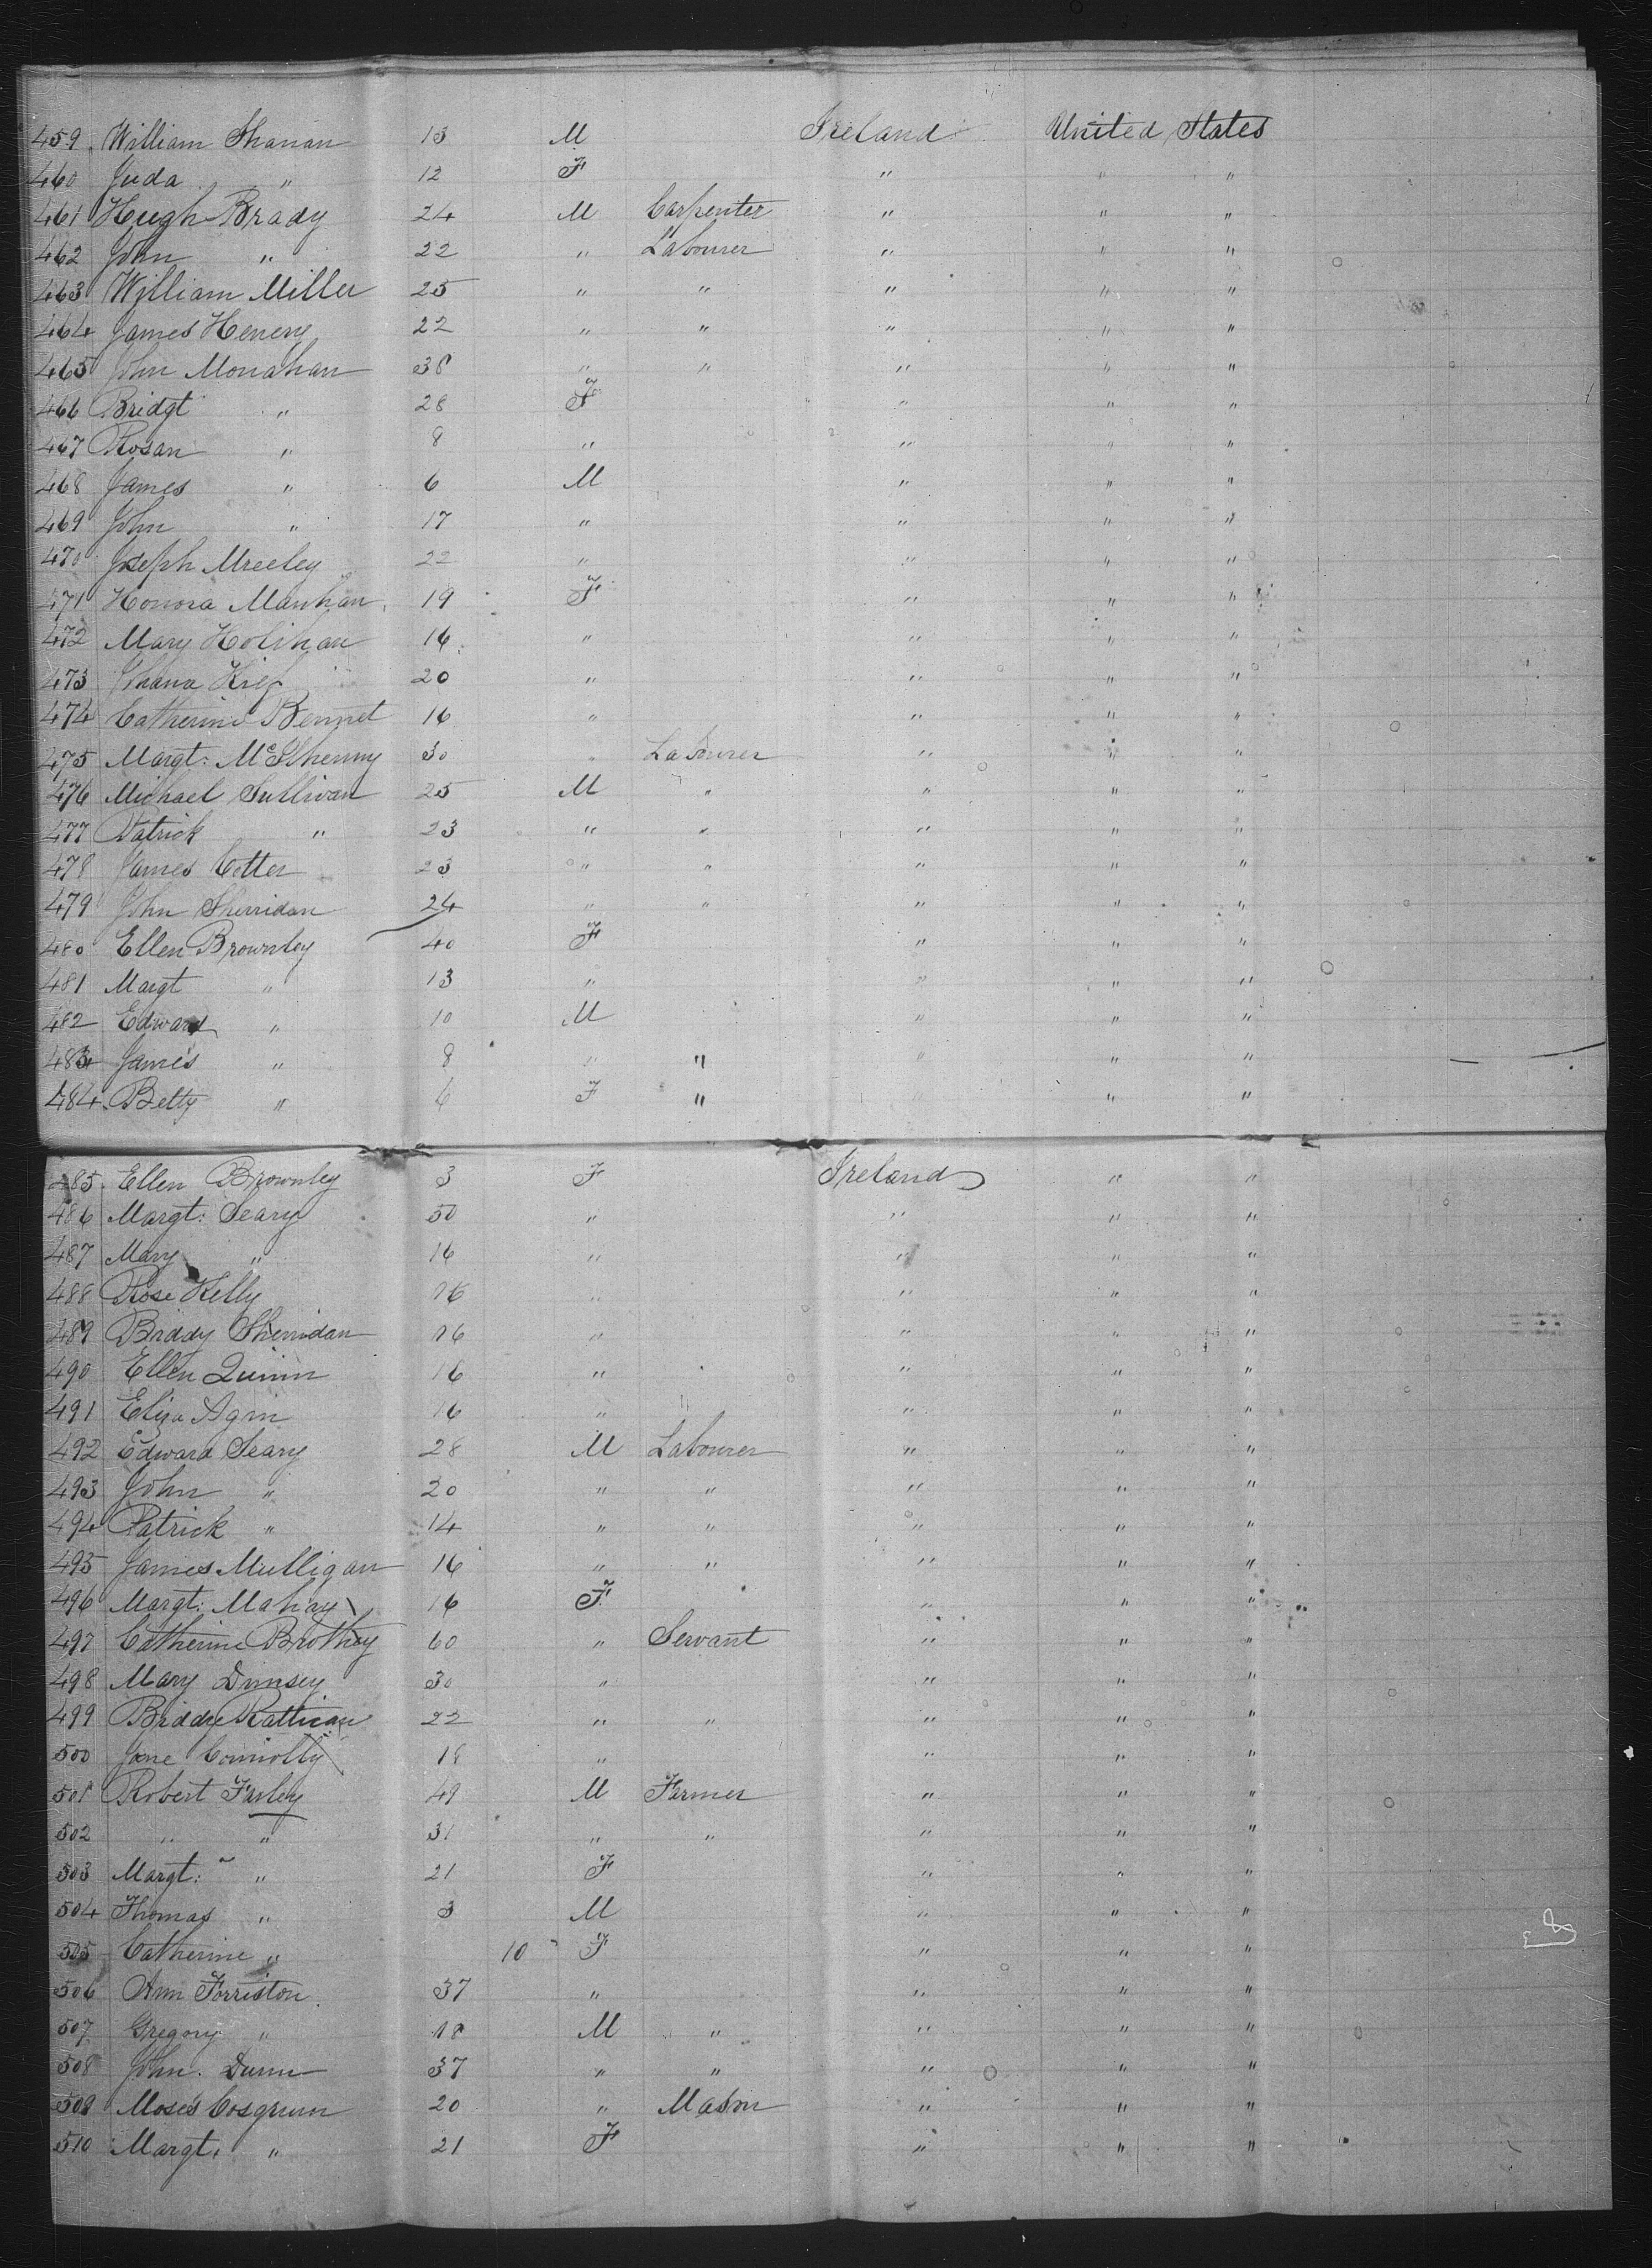 459 William Shanan 13 M Ireland United States
460 Juda " 12 F " " "
461 Hugh Brady 24 M Carpenter " " "
462 John " 22 " Labourer " " "
463 William Miller 25 " " " " "
464 James Henery 22 " " " " "
465 John Monahan 38 " " " " "
466 Bridgt " 28 F " " "
467 Rosan " 8 " " " "
468 James " 6 M " " "
469 John " 17 " " " "
470 Joseph 22 " " " "
471 Honora Manhan 19 F " " "
472 Mary Holihan 16 " " " "
473 Kief 20 " " " "
474 Catherine Bennet 16 " " " "
475 Margt: 30 " Labourer " " "
476 Michael Sullivan 25 M " " " "
477 Patrick " 23 " " " " "
478 James Cotter 23 " " " " "
479 John Sherridan 24 " " " " "
480 Ellen Brownley 40 F " " "
481 Margt " 13 " " " "
482 Edward " 10 M " " "
483 James " 8 " " " " "
484 Betty " 6 F " " " "
485 Ellen Brownley 3 F Ireland " "
486 Margt: Seary 50 " " " "
487 Mary " 16 " " " "
488 Rose Kelly 16 " " " "
489 Briddy Sherridan 16 " " " "
490 Ellen Quinn 16 " " " "
491 Eliza Agin 16 " " " "
492 Edward Seary 28 M Labourer " " "
493 John " 20 " " " " "
494 Patrick " 14 " " " " "
495 James Mulligan 16 " " " " "
496 Margt: Mahay 16 F " " "
497 Catherine Brothey 60 " Servant " " "
498 Mary Dimsey 30 " " " "
499 Briddy Rattican 22 " " " " "
500 Jane Connolly 18 " " " "
501 Robert Farley 49 M Farmer " " "
502 " " 31 " " " " "
503 Margt: " 21 F " " "
504 Thomas " 3 M " " "
505 Catherine " 10 F " " "
506 Ann Forriston 37 " " " "
507 Gregory " 18 M " " " "
508 John Dunn 37 " " " " "
509 Moses Cosgrum 20 " Mason " " "
510 Margt. " 21 F " " "